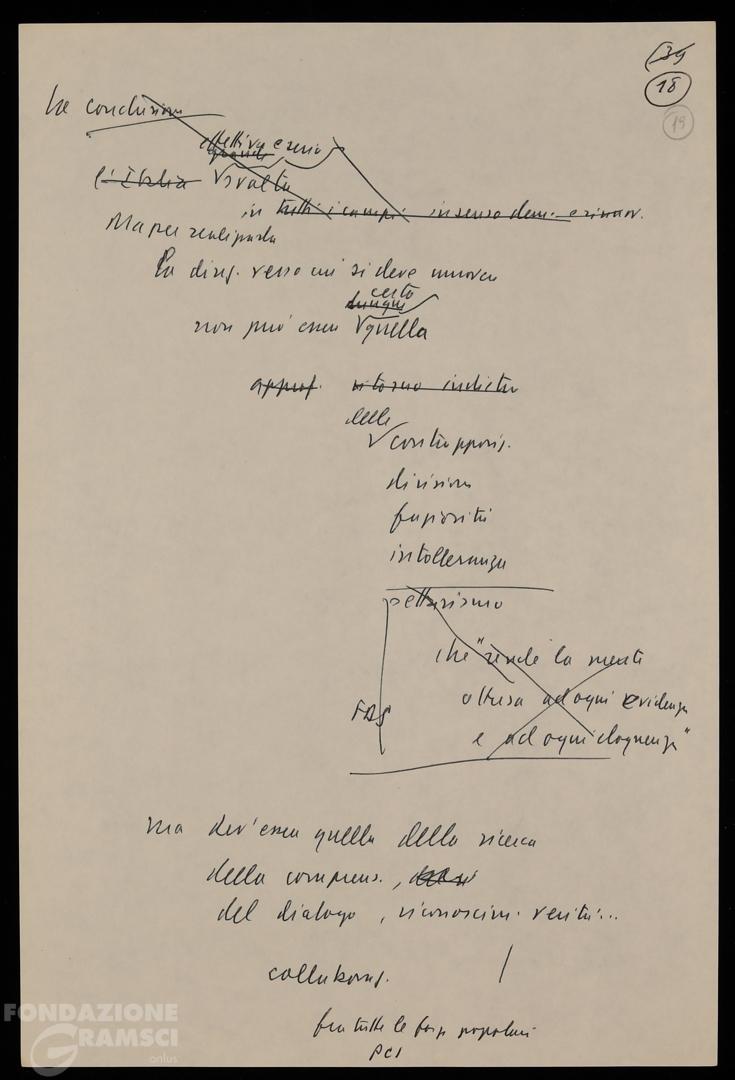 (39
18
19
In conclusione
effettiva e seria
grande
l'Italia svolta
in tutti i campi in senso dem. e rinnov.
Ma per realizzarla
la direz. verso cui si deve muovere
certo
dunque
non può essere quella
approf. ritorno indietro
delle
contrappos.
divisioni
faziosità
intolleranza
settarismo
che "rende la mente
ottusa ad ogni evidenza
e ad ogni eloquenza"
ma dev'essere quella della ricerca
della comprens.,
del dialogo, riconoscim. verità...
collaboraz.
fra tutte le forze popolari
PCI
FONDAZIONE
GRAMSCI
onlus